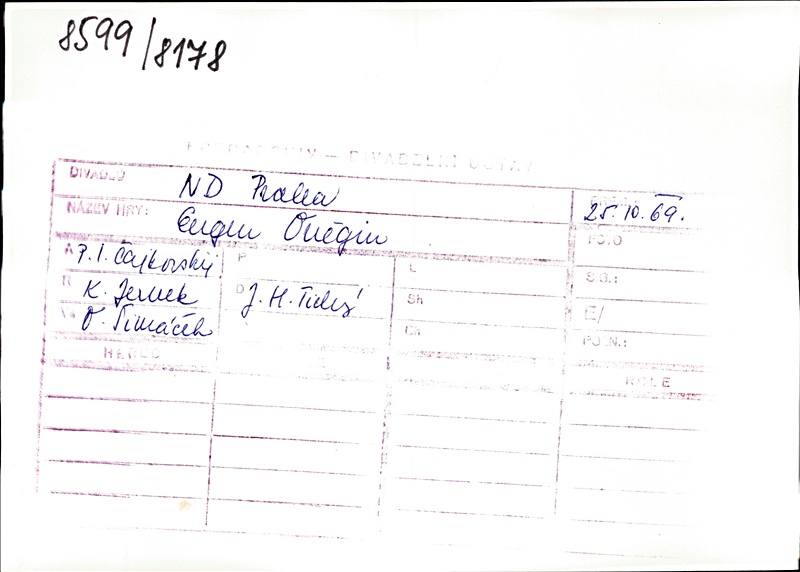 8599/8178
FOTOARCHIV – DIVADELNÍ ÚSTAV
DIVADLO ND Praha 25.10.69.
NÁZEV HRY: Eugen Oněgin
A P. I. Čajkovskij P L S.G.:
R K. Jernek D J. H. Tichý Sh E/
O. Šimáček Ch POZN.:
HEREC ROLE